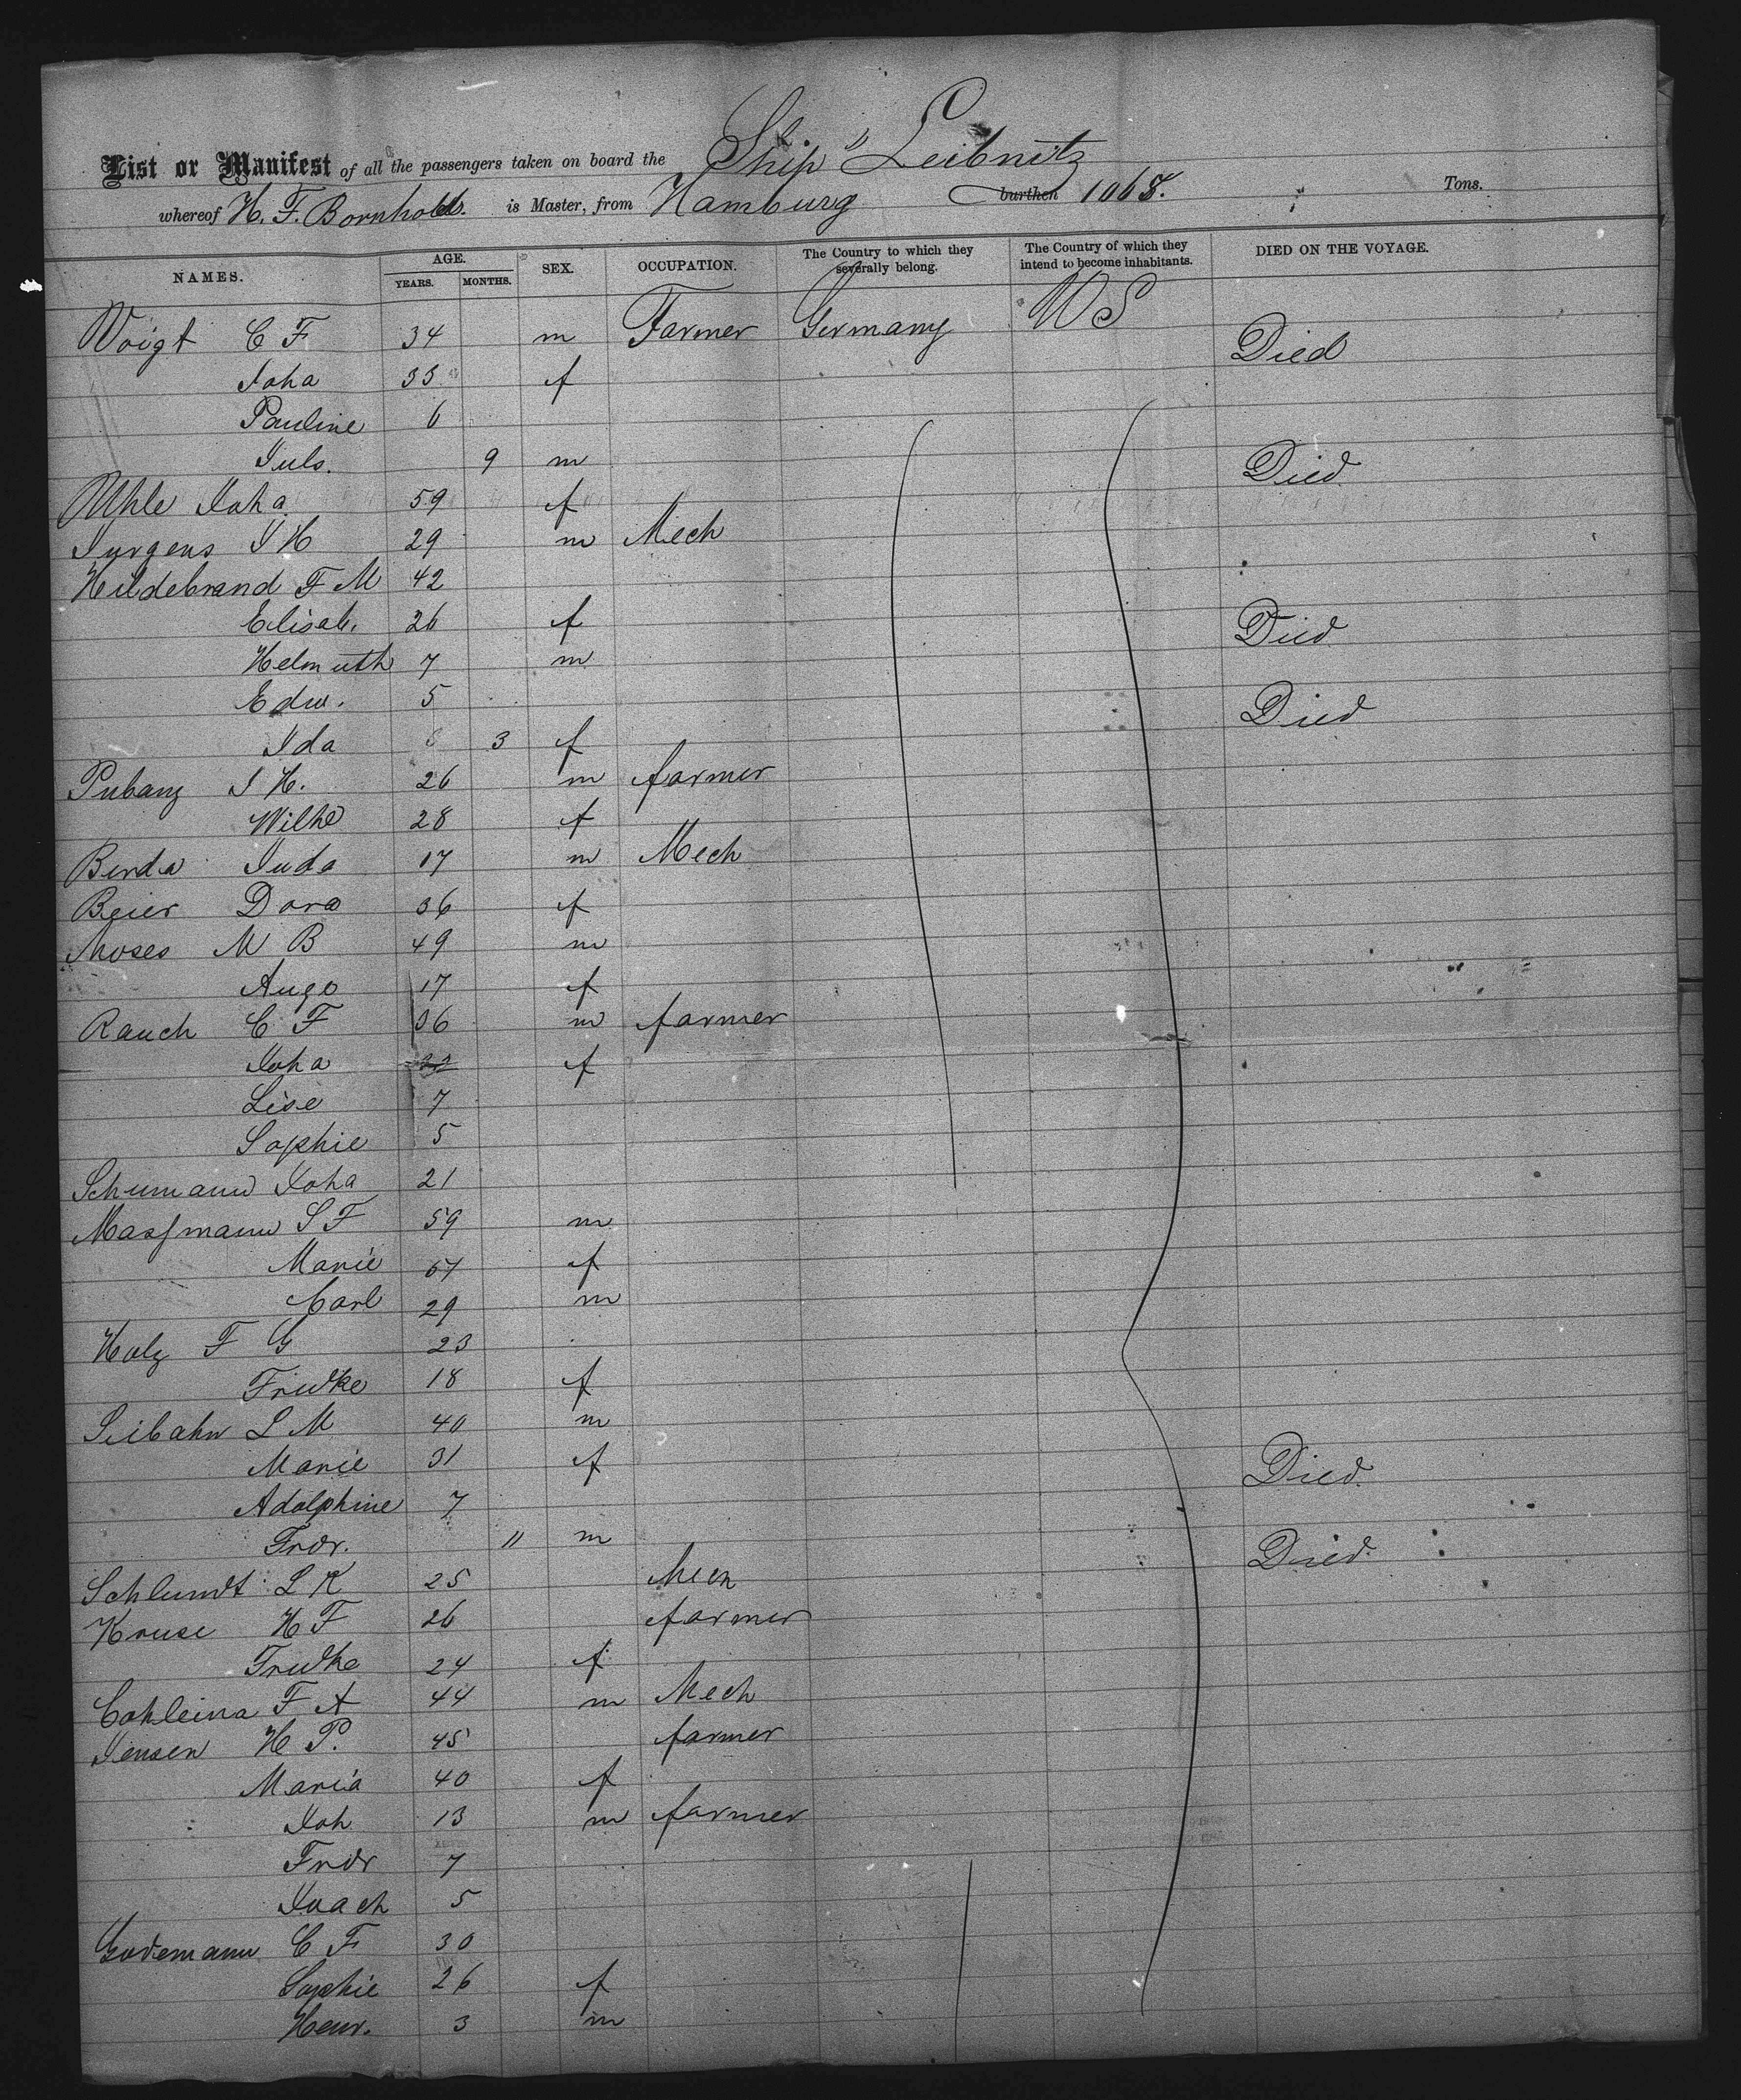 Ship "Leibnitz
List or Manifest of all the passengers taken on board the
whereof H. F. Bornhold. is Master, from Hamburg burthen 1068. Tons.
NAMES. AGE. YEARS. MONTHS. SEX. OCCUPATION. The Country to which they severally belong. The Country of which they intend to become inhabitants. DIED ON THE VOYAGE.
Voigt C F 34 m Farmer Germany US Died
Joha 33 f
Pauline 6
Juls. 9 m Died
Uhle Joha 59 f
Jurgens J H 29 m Mech
Hildebrand F M 42
Elisab. 26 f Died
Helmuth 7 m
Edw. 5 Died
Ida 3 f
Pubanz J H. 26 m farmer
Wilhe 28 f
Berda Juda 17 m Mech
Beier Dora 36 f
Moses M B 49 m
Auge 17 f
Rauch C F 36 m farmer
Joha f
Lise 7
Sophie 5
Schumann Joha 21
Massmann S F 59 m
Marie 67 f
Carl 29 m
Holz F G 23
Friedke 18 f
Seibahn L M 40 m
Marie 31 f Died
Adolphine 7
Frdr. 11 m Died
Schlundt L K 25 Mech
Kruse H F 26 farmer
Friedke 24 f
Cohleina F A 44 m Mech
Jensen H P. 45 farmer
Maria 40 f
Joh 13 m farmer
Frdr 7
Joach 5
Godemann C F 30
Sophie 26 f
Henr. 3 m